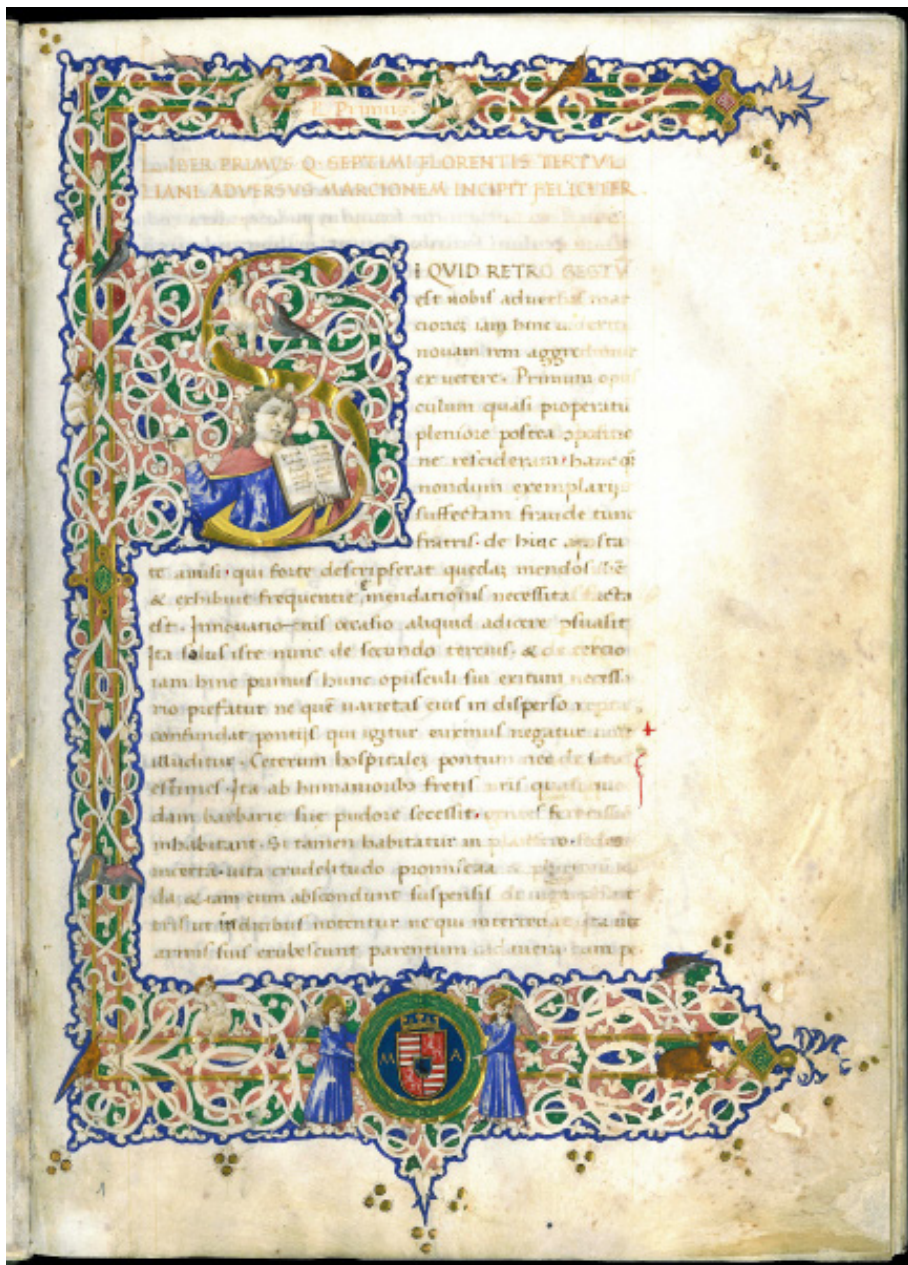 L. Primus.
LIBER PRIMVS Q. SEPTIMI FLORENTIS TERTVL
LIANI. ADVERSVS MARCIONEM INCIPIT FELICITER
I QVID RETRO GESTV̄
est nobis adversus mar
cionez iam hinc
novam rem aggredimur
ex vetere. Primum opus
culum quasi properatū
pleniore postea
ne rescideram. hanc
nondum exemplarijs
suffectam fraude tunc
fratris. de hinc aposta
te amisi. qui forte descripserat quedaz mendos
& exhibuit frequentie mendationis necessita
est. Innovatio eius occasio aliquid adicere
Ita solus iste nunc de secundo tercius. & de tercio
iam hinc primus hunc opusculi sui exitum necessa
rio prefatur ne quē varietas eius in disperso
confundat pontijs qui igitur euxinus negatur
illuditur. Ceterum hospitalez pontum nec de situ
estimes. Ita ab humanioribꝫ fretis
dam barbarie sue pudore secessit.
inhabitant. Si tamen habitatur in plaustro. sedes
incerta. vita crudelitudo promiscua &
da. etiam cum abscondunt suspensis de iugo
notentur ne qui intercedat. Ita
armis suis erubescunt parentum cadavera cum pe
M A
1